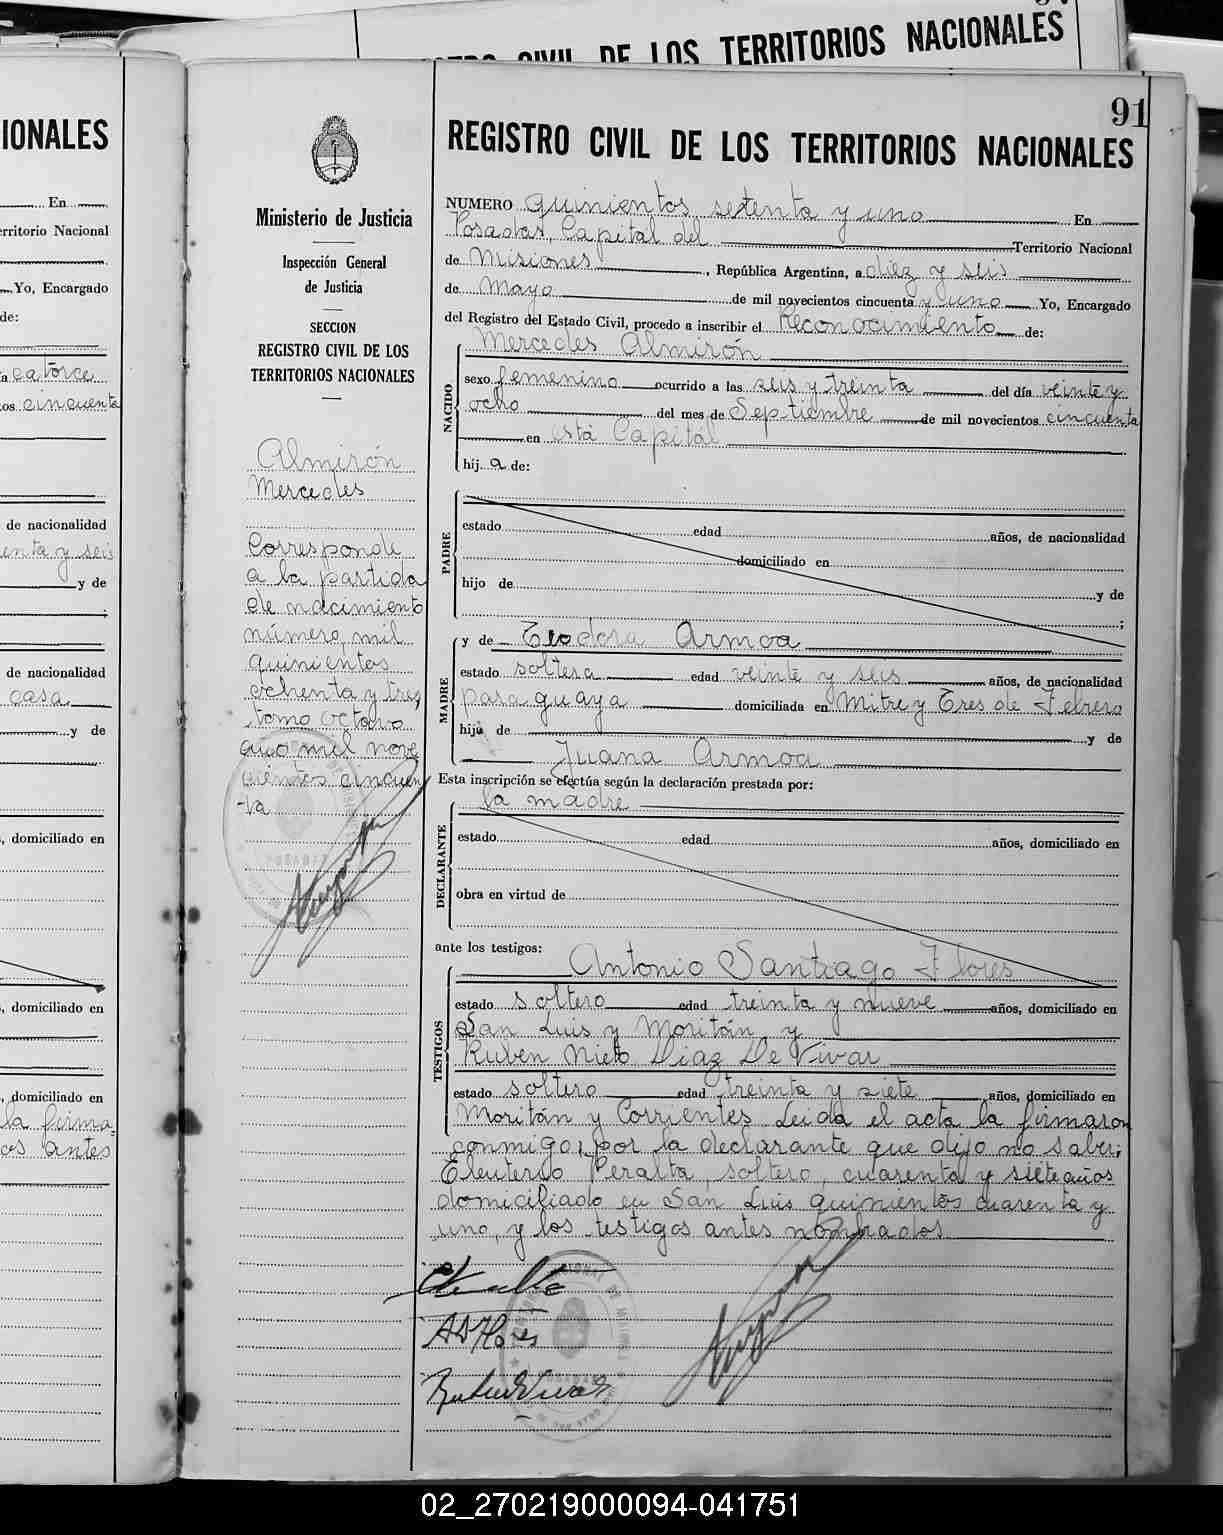 REGISTRO CIVIL DE LOS TERRITORIOS NACIONALES
91
REGISTRO CIVIL DE LOS TERRITORIOS NACIONALES
NUMERO quinientos setenta y uno En
Posadas, Capital del Territorio Nacional
de Misiones, República Argentina, a diez y seis
de Mayo de mil novecientos cincuenta y uno Yo, Encargado
del Registro del Estado Civil, procedo a inscribir el Reconocimiento de:
NACIDO
Mercedes Almirón
sexo femenino ocurrido a las seis y treinta del día veinte y
ocho del mes de Septiembre de mil novecientos cincuenta
en está Capital
hij a de:
PADRE
estado edad años, de nacionalidad
domiciliado en
hijo de y de
;
MADRE
y de Teodora Armoa
estado soltera edad veinte y seis años, de nacionalidad
paraguaya domiciliada en Mitre y Tres de Febrero
hija de y de
Juana Armoa
Esta inscripción se efectúa según la declaración prestada por:
DECLARANTE
la madre
estado edad años, domiciliado en
obra en virtud de
ante los testigos:
TESTIGOS
Antonio Santiago Flores
estado soltero edad treinta y nueve años, domiciliado en
San Luis y Moritán y
Ruben Nieto Diaz De Vivar
estado soltero edad treinta y siete años, domiciliado en
Moritán y Corrientes Leida el acta la firmaron
conmigo, por la declarante que dijo no saber:
Eleuterio Peralta, soltero, cuarenta y siete años
domiciliado en San Luis quinientos cuarenta y
uno, y los testigos antes nombrados
Ministerio de Justicia
Inspección General
de Justicia
SECCION
REGISTRO CIVIL DE LOS
TERRITORIOS NACIONALES
Almirón
Mercedes
Corresponde
a la partida
de nacimiento
número, mil
quinientos
ochenta y tres,
tomo octavo
año mil nove
cientos cincuen
-ta
IONALES
En
erritorio Nacional
Yo, Encargado
de:
a catorce
tos cincuenta
de nacionalidad
enta y seis
y de
de nacionalidad
casa
y de
, domiciliado en
, domiciliado en
, domiciliado en
la firma=
os antes
02_270219000094-041751